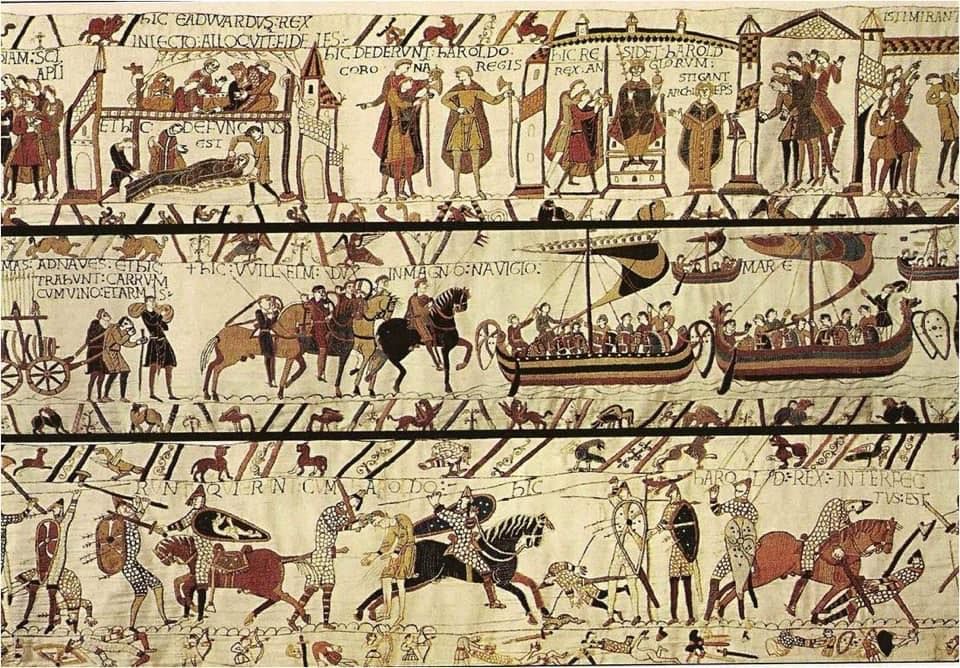 IAM: SCI
APLI
hIC EADVVARDVS: REX
IN LECTO: ALLOQVIT: FIDELES:
ET hIC DEFVNCTVS
EST
hIC DEDERVNT: hAROLDO
CORO NA REGIS
hIC RE SIDET: hAROLD
REX: AN GLORVM:
STIGANT
ARChI EPS
ISTI MIRANT
MAS: AD NAVES: ET hIC
TRAhVNT: CARRVM
CVM VINO: ET ARMIS:
† hIC: VVILLELM: DVX IN MAGNO: NAVIGIO:
MARE
RVNT QVI ERANT CVM hAROLDO:
hIC hAROLD: REX: INTERFEC
TVS: EST